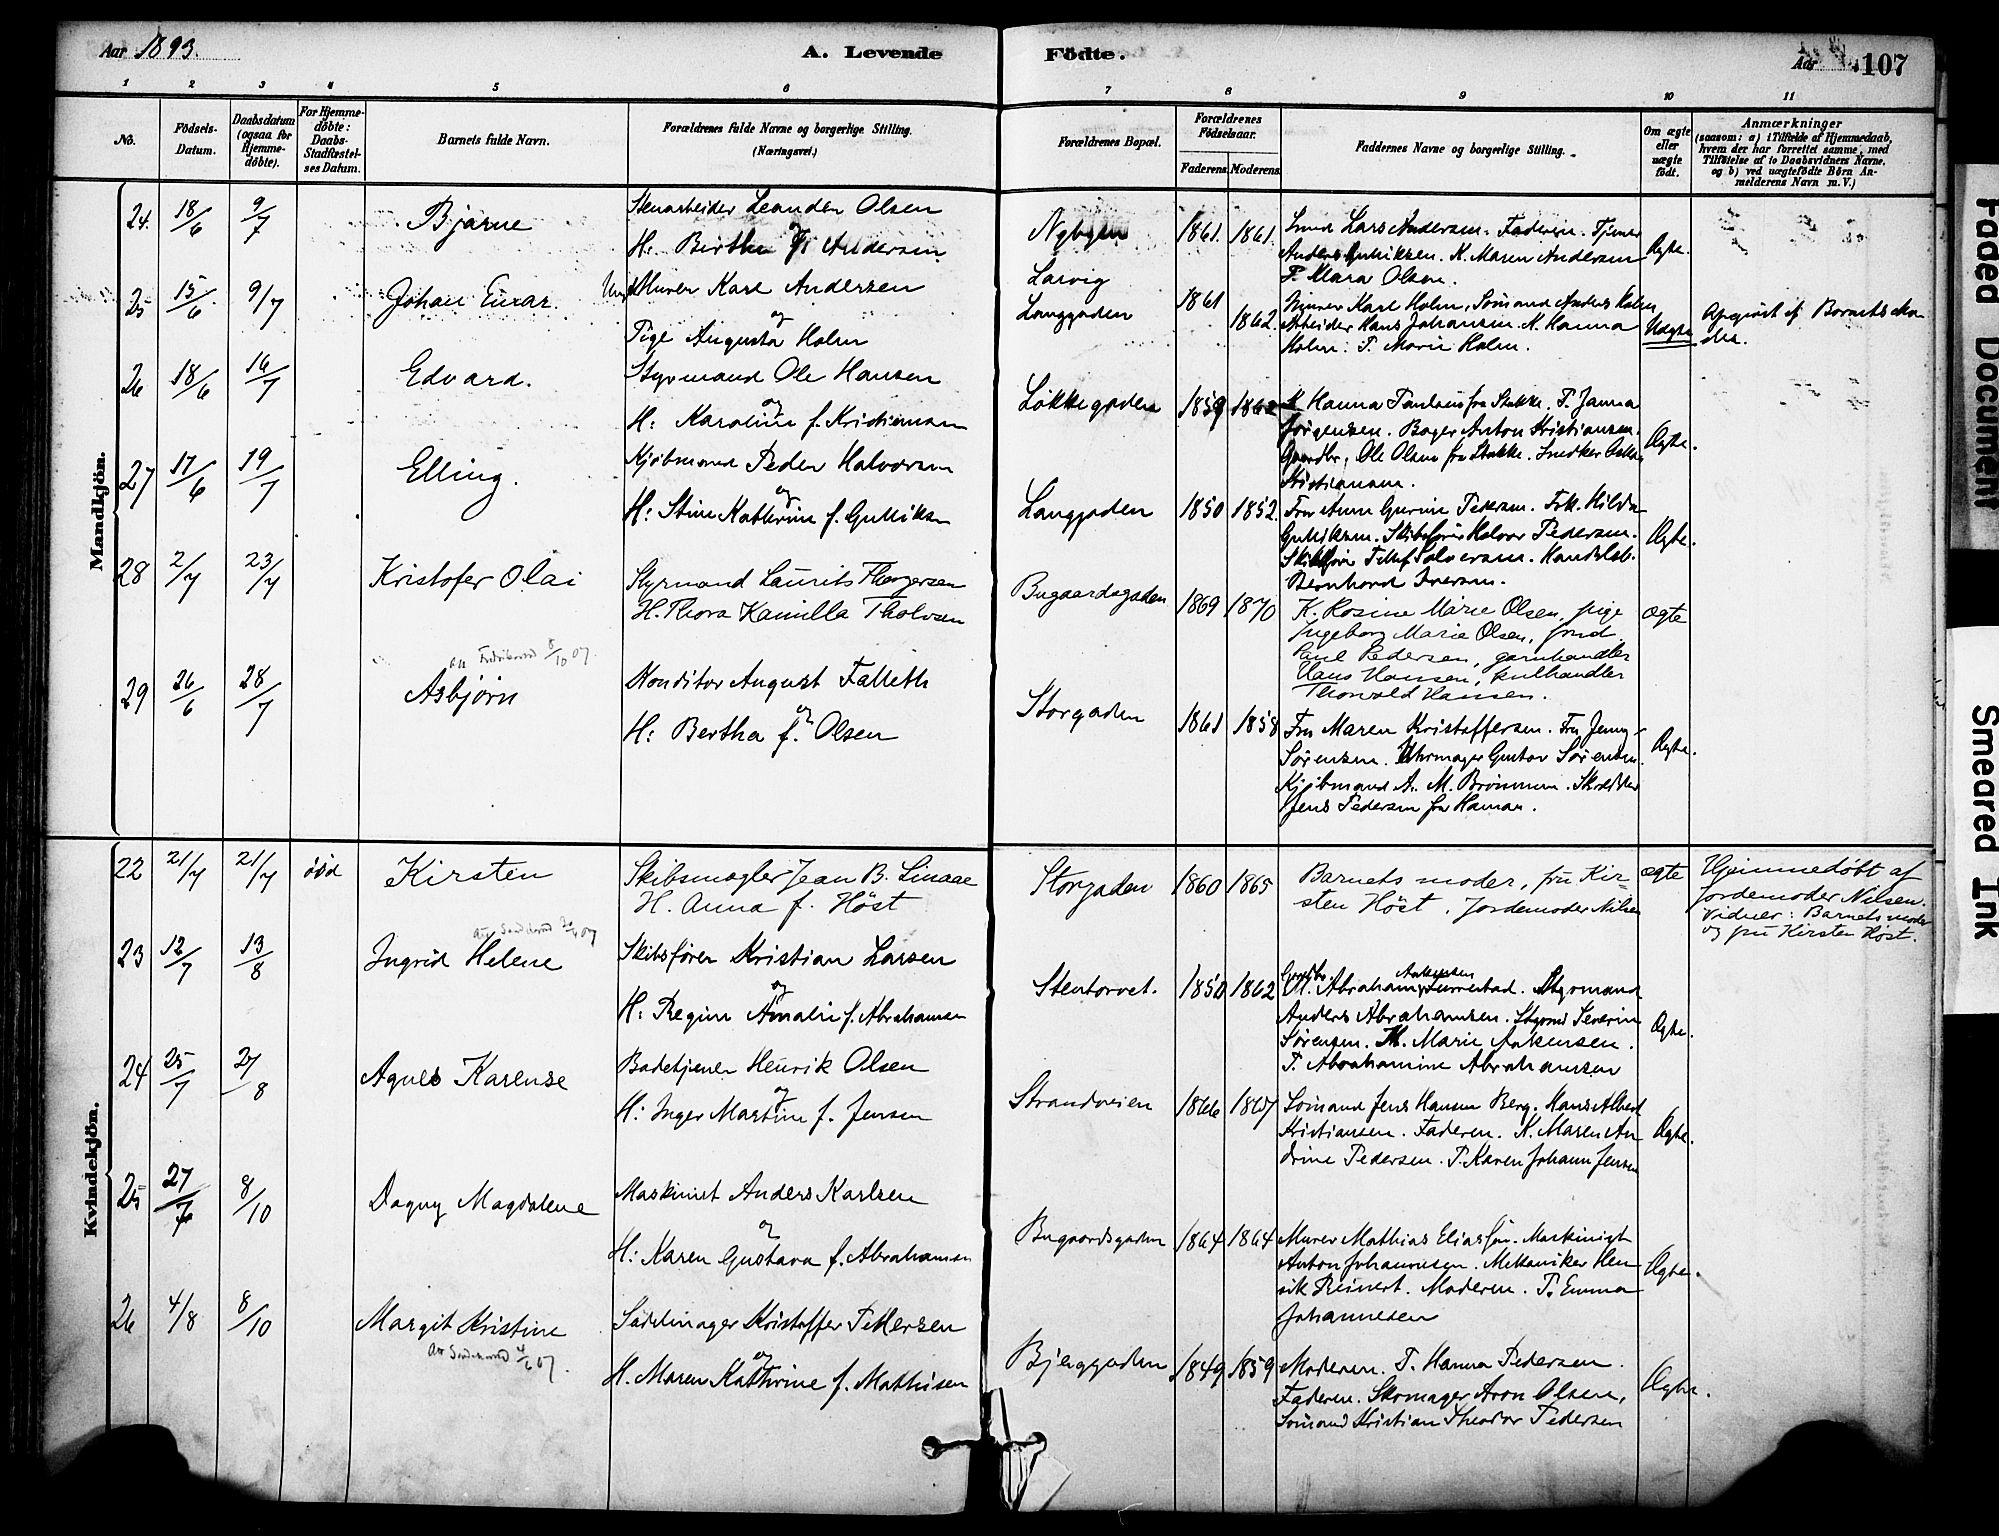 Aar 1893.
A. Levende
Födte.
Aar
107
1 2 3 4 5 6 7 8 9 10 11
No.
Födsels-Datum.
Daabsdatum (ogsaa for Hjemme-döbte).
For Hjemme-döbte: Daabs-Stadfæstel-ses Datum.
Barnets fulde Navn.
Forældrenes fulde Navne og borgerlige Stilling. (Næringsvei.)
Forældrenes Bopæl.
Forældrenes Födselsaar.
Faderens. Moderens.
Faddernes Navne og borgerlige Stilling.
Om ægte eller uægte födt.
Anmærkninger
(saasom: a) i Tilfælde af Hjemmedaab,
hvem der har forrettet samme, med
Tilföielse af to Daabsvidners Navne,
og b) ved uægtefödte Börn An-
melderens Navn m. V.)
Mandkjön.
24. 18/6 9/7 Bjarne
Stenarbeider Leander Olsen
og
H: Birthe Andersen
Nybyen
Larvig
1861. 1861.
Smed Lars Andersen. Faderen. Tjener
Anders Gulliksen. K. Maren Andersen
P. Mara Olsen.
Ægte.
25 15/6 9/7 Johan Einar
Ungk. Murer Karl Andersen
og
Pige Augusta Holm
Langgaden
1861 1862.
Murer Karl Holm, Sömand Anders Holm,
Arbeider Hans Johansen. K. Hanna
Holm. P. Marie Holm.
Uægte
Opgivet af Barnets Mo
der.
26 18/6 16/7 Edvard.
Styrmand Ole Hansen
og
H: Karoline f. Kristiansen
Lökkegaden
1859 1862
K Hanna Paulsen fra Stokke. P. Janna
Jörgensen. Bager Anton Kristiansen.
Gaardbr. Ole Olsen fra Stokke. Snedker
Kristiansen.
Ægte.
27 17/6 19/7 Elling.
Kjöbmand Peder Halvorsen
og
H: Stine Kathrine f. Gulliksen
Langgaden
1850 1852.
Fru Anne Gurine Pedersen. Frk. Hilda
Gulliksen. Skibsförer Halvor Pedersen.
Skibsförer Tellef Salvesen. Handelsb.
Bernhard Iversen.
Ægte.
28 2/7 23/7 Kristofer Olai
Styrmand Laurits Thorgersen
H. Thora Kamilla Tholvsen
Bugaardsgaden
1869 1870
K. Rosine Marie Olsen, pige
Ingeborg Marie Olsen, smed
Paul Pedersen, garnhandler
Hans Hansen, kulhandler
Thorvald Hansen.
ægte
Att Fredriksværn 8/10 07.
29 26/6 28/7 Asbjörn
Konditor August Falleth
og
H: Bertha f. Olsen
Storgaden
1861 1858
Fru Maren Kristoffersen. Fru Jenny
Sörensen. Uhrmager Gustav Sörensen.
Kjöbmand A. M. Brömmen. Skrædder
Jens Pedersen fra Hamar.
Ægte.
Kvindekjön.
22 21/7 21/7 död Kirsten
Skibsmægler Jean B. Linaae
H. Anna f. Höst
Storgaden
1860 1865
Barnets moder, fru Kir-
sten Höst, Jordemoder Nilsen
ægte
Hjemmedöbt af
Jordemoder Nilsen.
Vidner: Barnets moder
og fru Kirsten Höst.
Att Sandherred 07
23 12/7 13/8 Ingrid Helene
Skibsförer Kristian Larsen
og
H: Regine Amalie f. Abrahamsen
Stentorvet.
1850 1862
Gaardbr. Abraham Ankersen. Styrmand
Anders Abrahamsen. Styrmd Severin
Sörensen. K. Marie Ankersen.
P. Abrahamine Abrahamsen
Ægte.
24 25/7 27/8 Agnes Karense
Badetjener Henrik Olsen
og
H: Inger Martine f. Jensen
Strandveien
1866 1867
Sömand Jens Hansen Berg. Hans Albert
Kristiansen. Faderen. K. Maren An
drine Pedersen. P. Karen Johanne Jensen
Ægte.
25 27/7 8/10 Dagny Magdalene
Maskinist Anders Karlsen
og
H: Karen Gustava f. Abrahamsen
Bugaardsgaden
1864 1864
Murer Mathias Eliassen. Maskinist
Anton Johannesen. Mekaniker Hen
rik Reinert. Moderen. P. Emma
Johannesen
Ægte.
26 4/8 8/10 Margit Kristine
Att Sandherred 4/6 07.
Sadelmager Kristoffer Pettersen
og
H. Maren Kathrine f. Mathisen
Bjerggaden
1849 1859
Moderen. P. Hanna Pedersen.
Faderen. Skomager Aron Olsen,
Sömand Kristian Theodor Pedersen
Ægte.
Faded Document
Smeared Ink